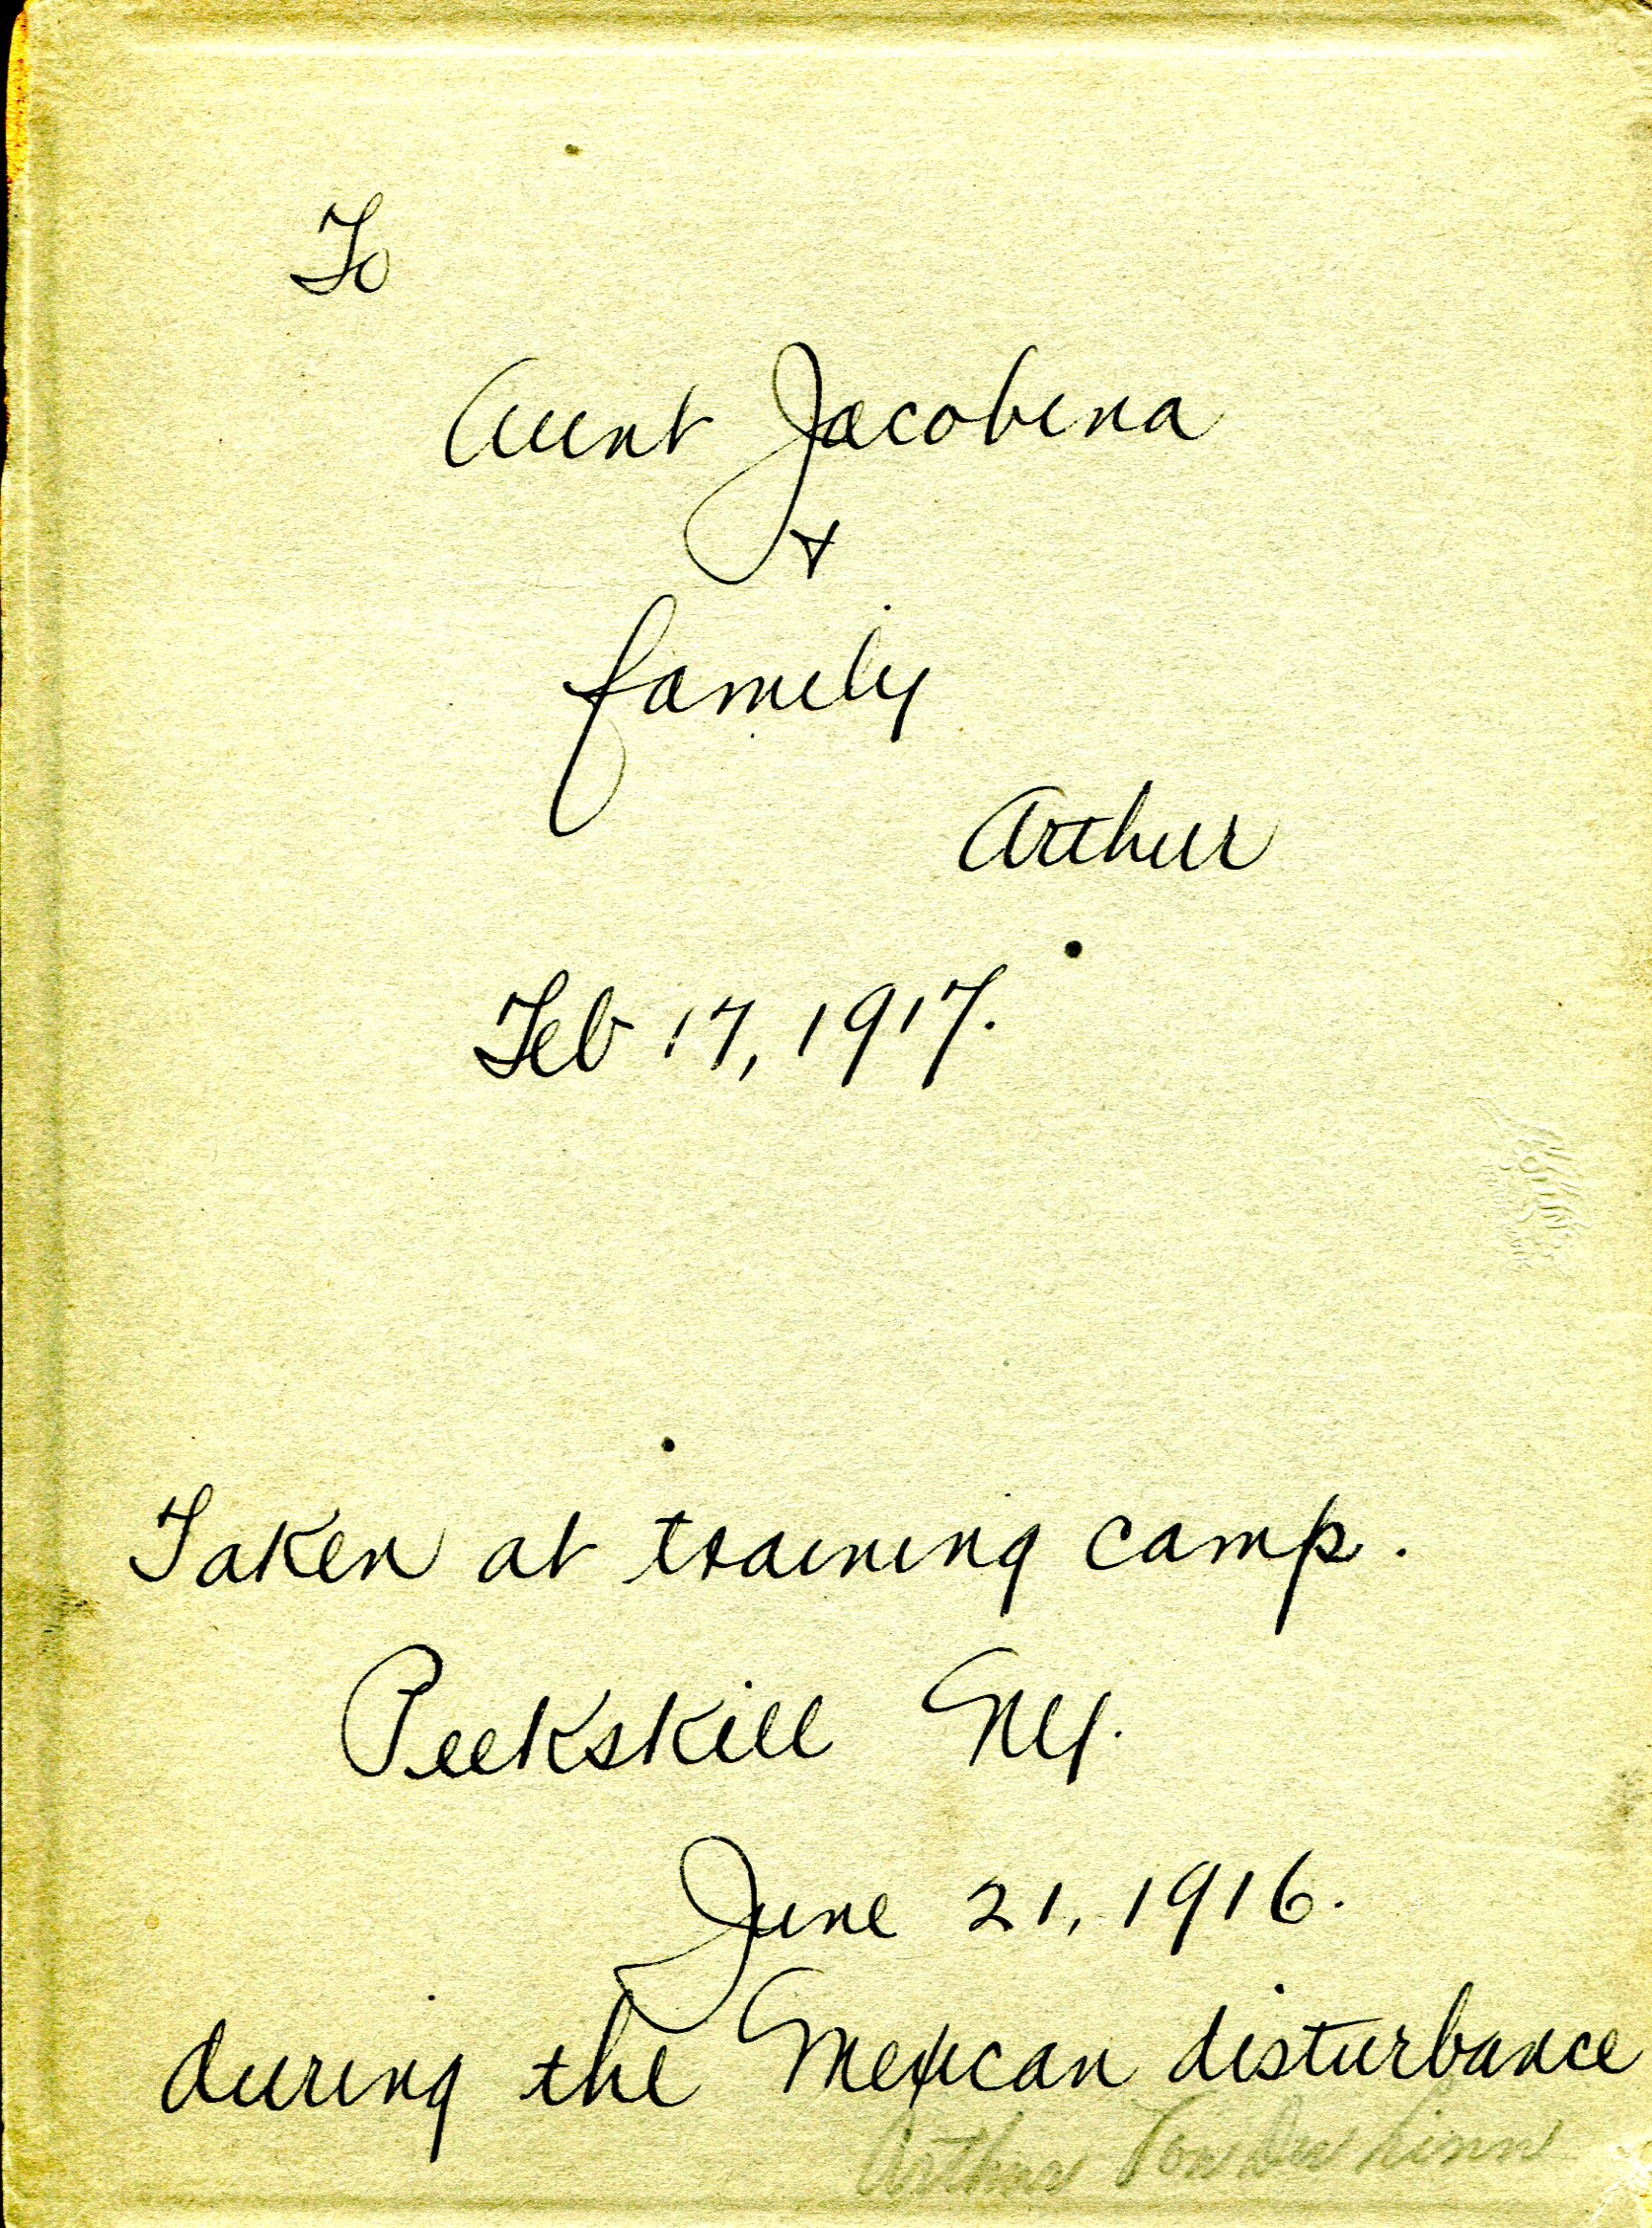 To
Aunt Jacobina
&
family
Arthur
Feb 17, 1917.
Taken at training camp.
Peekskill NY.
June 21, 1916.
during the Mexican disturbance
Arthur Von Der Linn